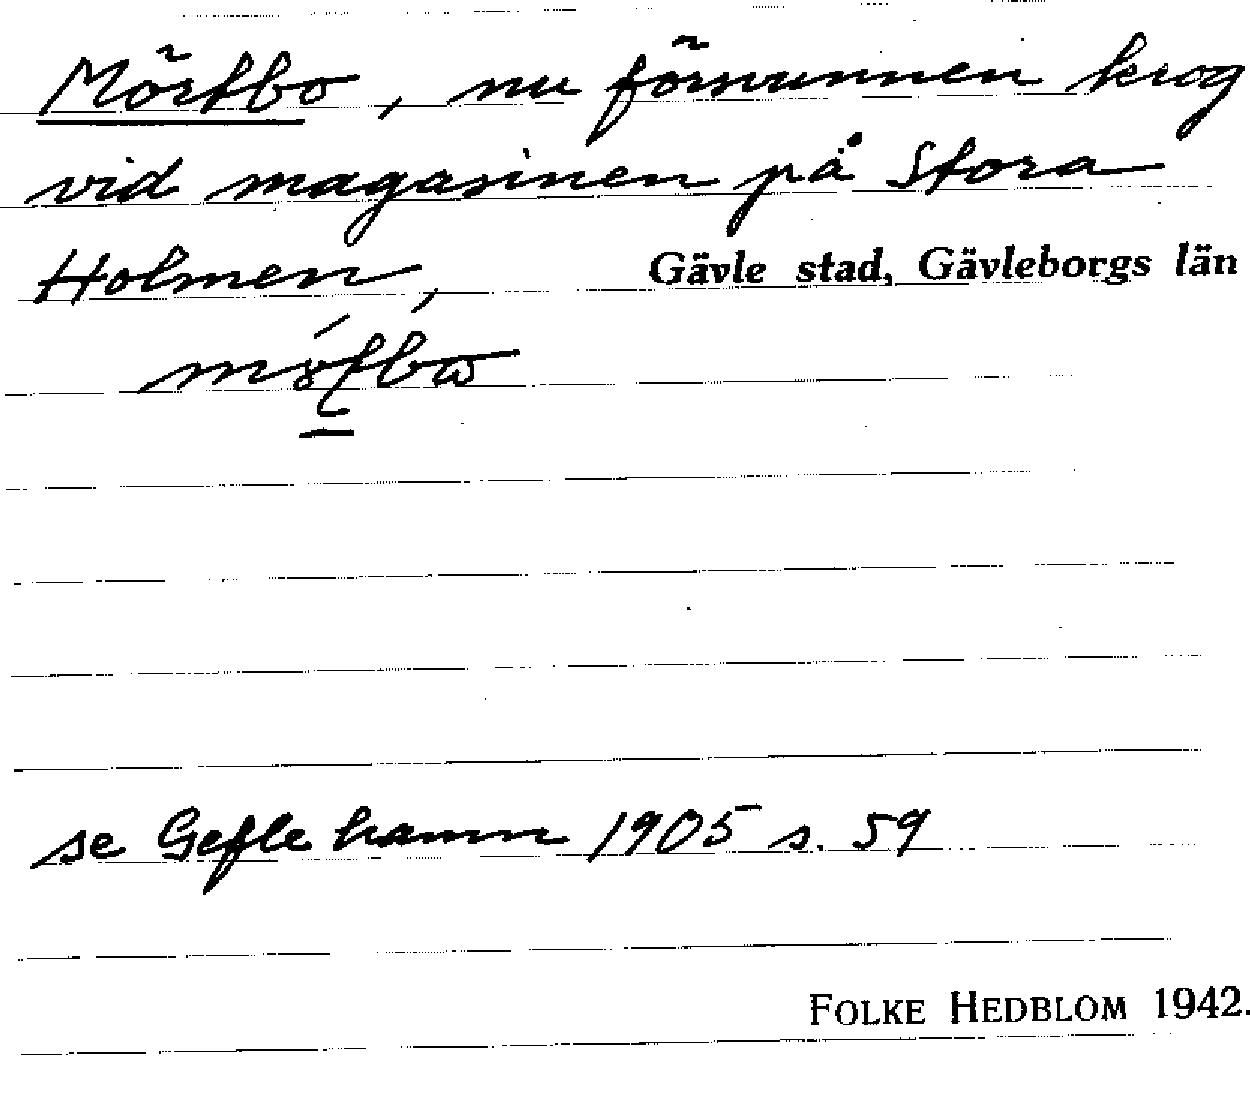 Mörtbo, nu försvunnen krog
vid magasinen på Stora
Holmen, Gävle stad, Gävleborgs län
se Gefle hamn 1905 s. 59
FOLKE HEDBLOM 1942.